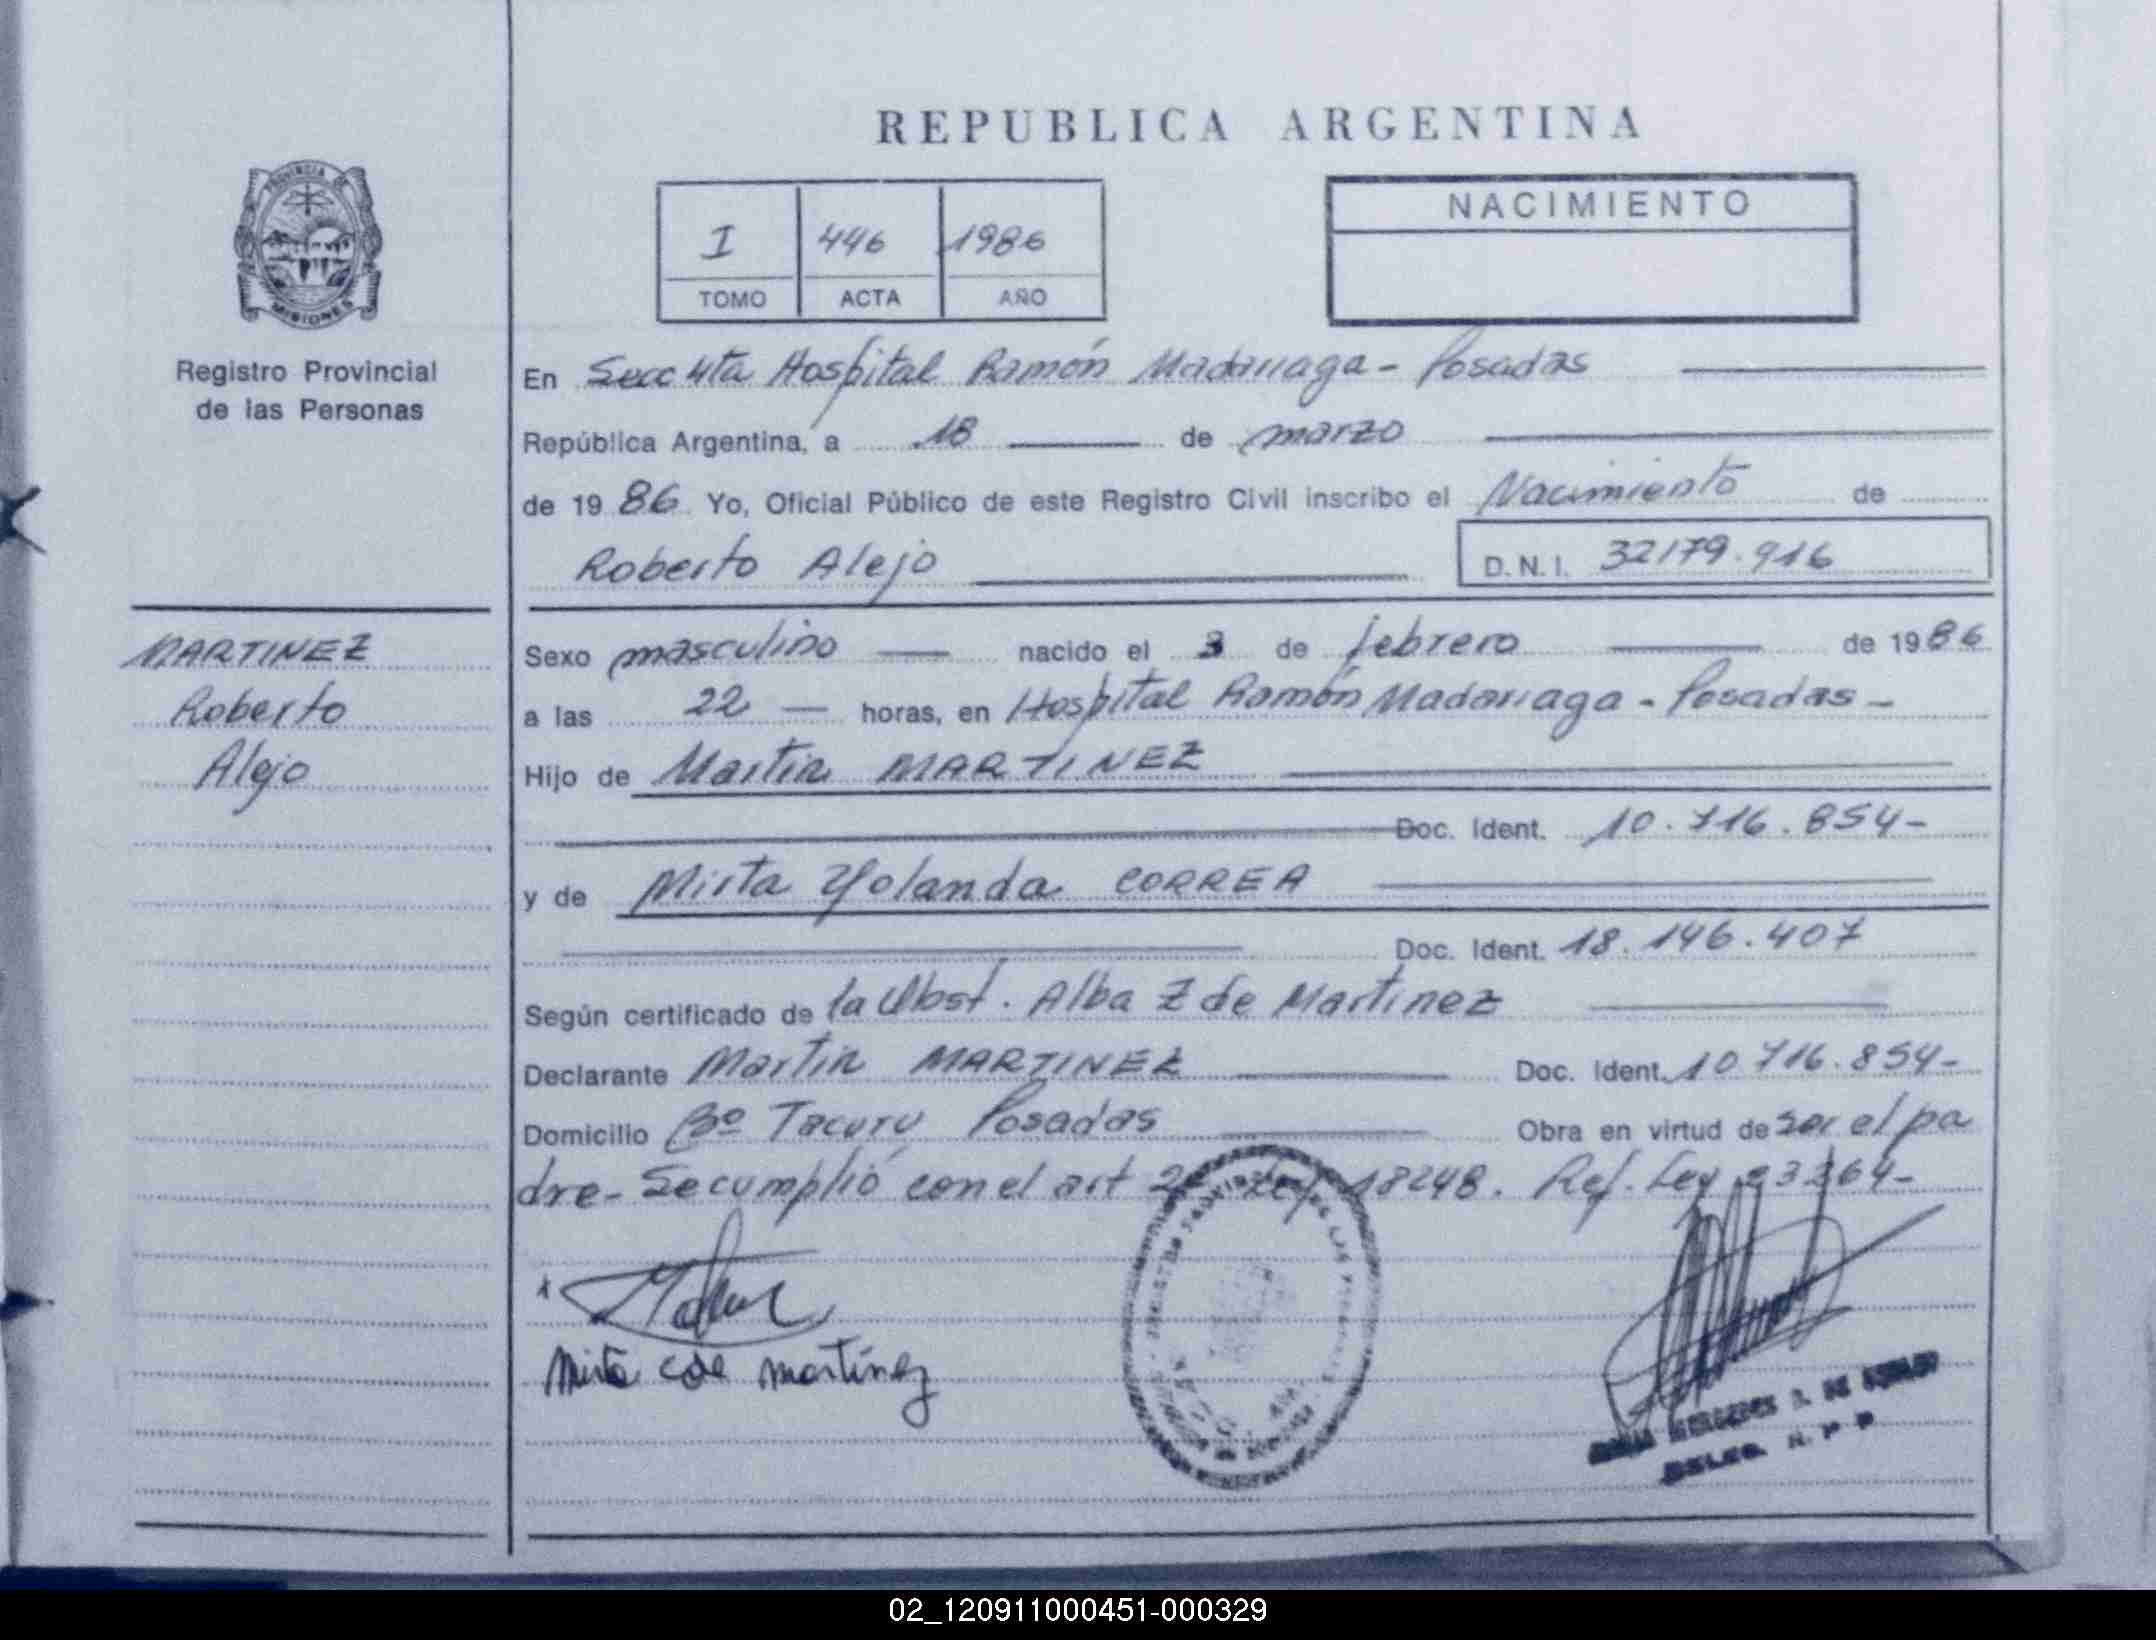 REPUBLICA ARGENTINA
PROVINCIA DE
MISIONES
Registro Provincial
de las Personas
I 446 1986
TOMO ACTA AÑO
NACIMIENTO
En Secc 4ta Hospital Ramón Madariaga - Posadas
República Argentina, a 18 de marzo
de 19 86 Yo, Oficial Público de este Registro Civil inscribo el Nacimiento de
Roberto Alejo D.N.I. 32179.916
MARTINEZ
Roberto
Alejo
Sexo masculino nacido el 3 de febrero de 19 86
a las 22 horas, en Hospital Ramón Madariaga - Posadas -
Hijo de Martin MARTINEZ
Doc. Ident. 10.716.854-
y de Mirta Yolanda CORREA
Doc. Ident. 18.146.407
Según certificado de la Obst. Alba Z de Martinez
Declarante Martin MARTINEZ Doc. Ident. 10 716.854-
Domicilio Bº Tacurú Posadas Obra en virtud de ser el pa
dre - Se cumplió con el art 18248. Ref. Ley 23264-
Mirta C de martínez
02_120911000451-000329